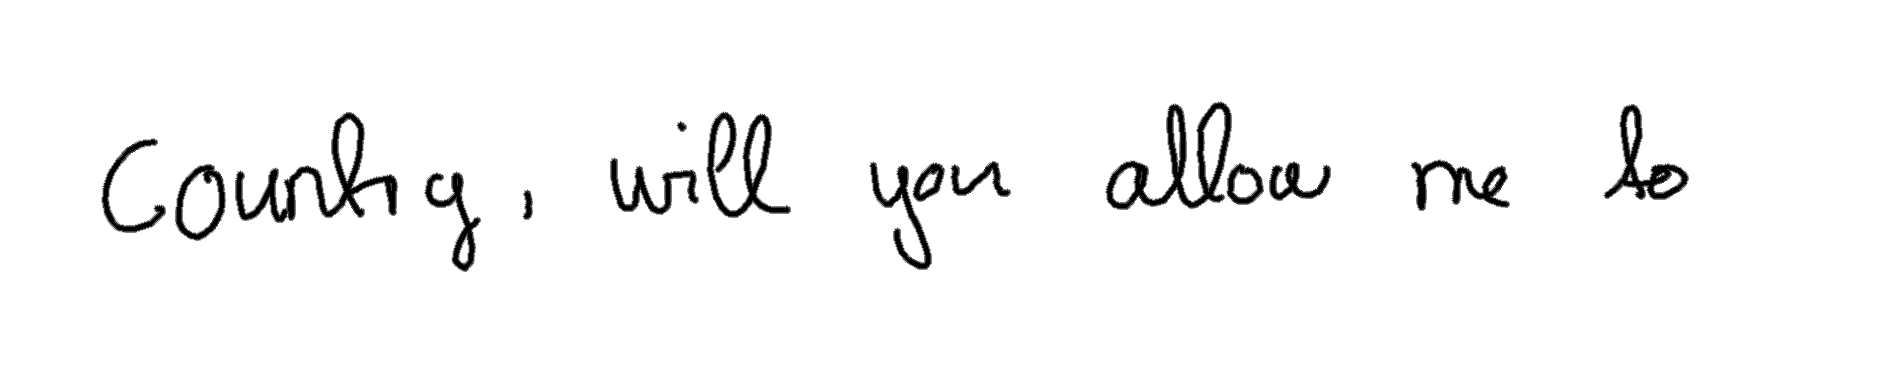 Country, will you allow me to